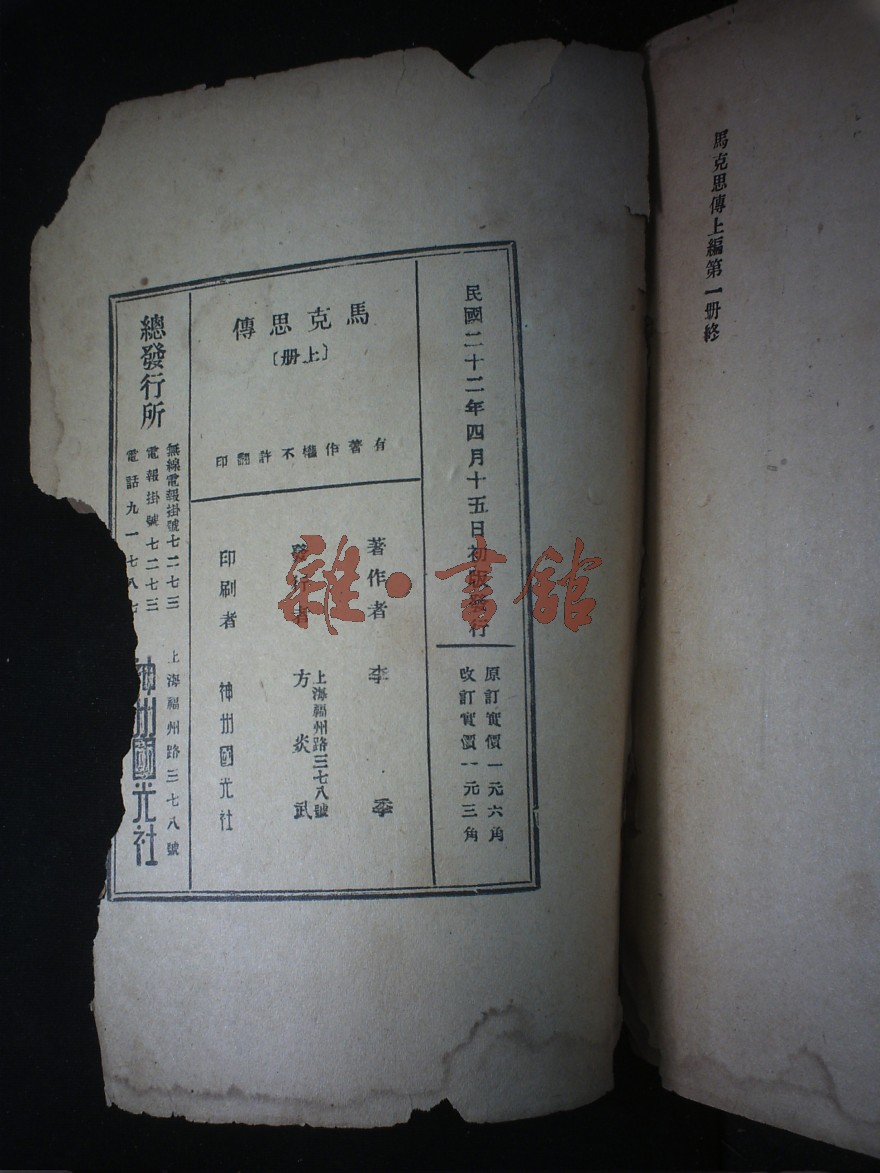 馬克思傳上編第一册終
民國二十二年四月十五日初版發行
原訂實價一元六角
改訂實價一元三角
馬克思傳
〔上册〕
有著作權不許翻印
著作者 李季
發行者 方炎武
上海福州路三七八號
印刷者 神州國光社
總發行所
無線電報掛號七二七三
電報掛號七二七三
電話九一七八七
上海福州路三七八號
神州國光社
雜·書館